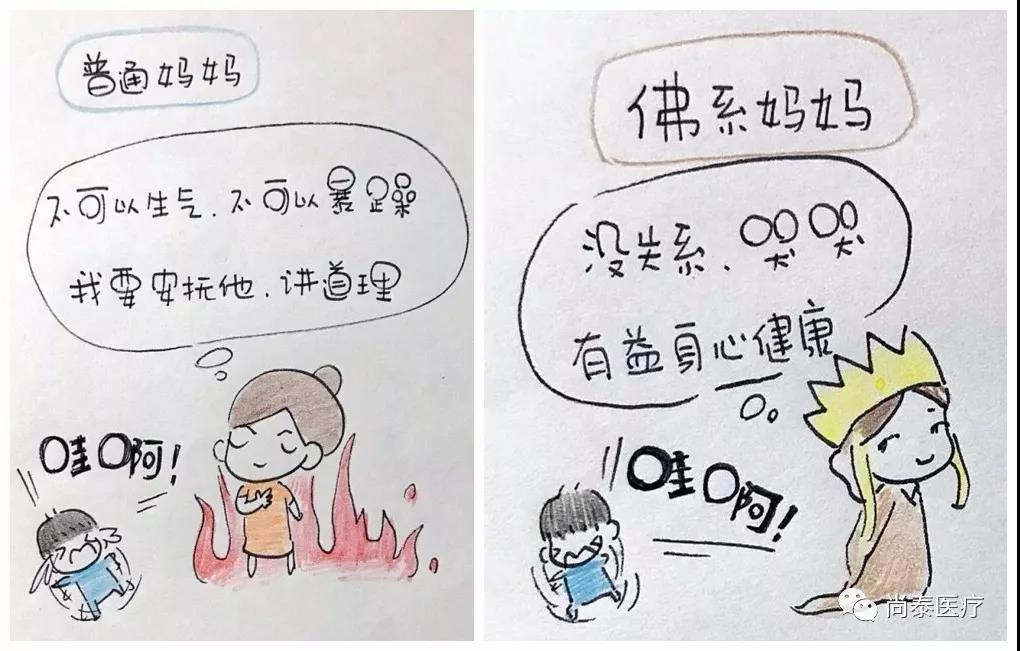 普通妈妈
不可以生气.不可以暴躁
我要安抚他.讲道理
哇啊!
佛系妈妈
没关系.哭哭
有益身心健康
哇啊!
尚泰医疗